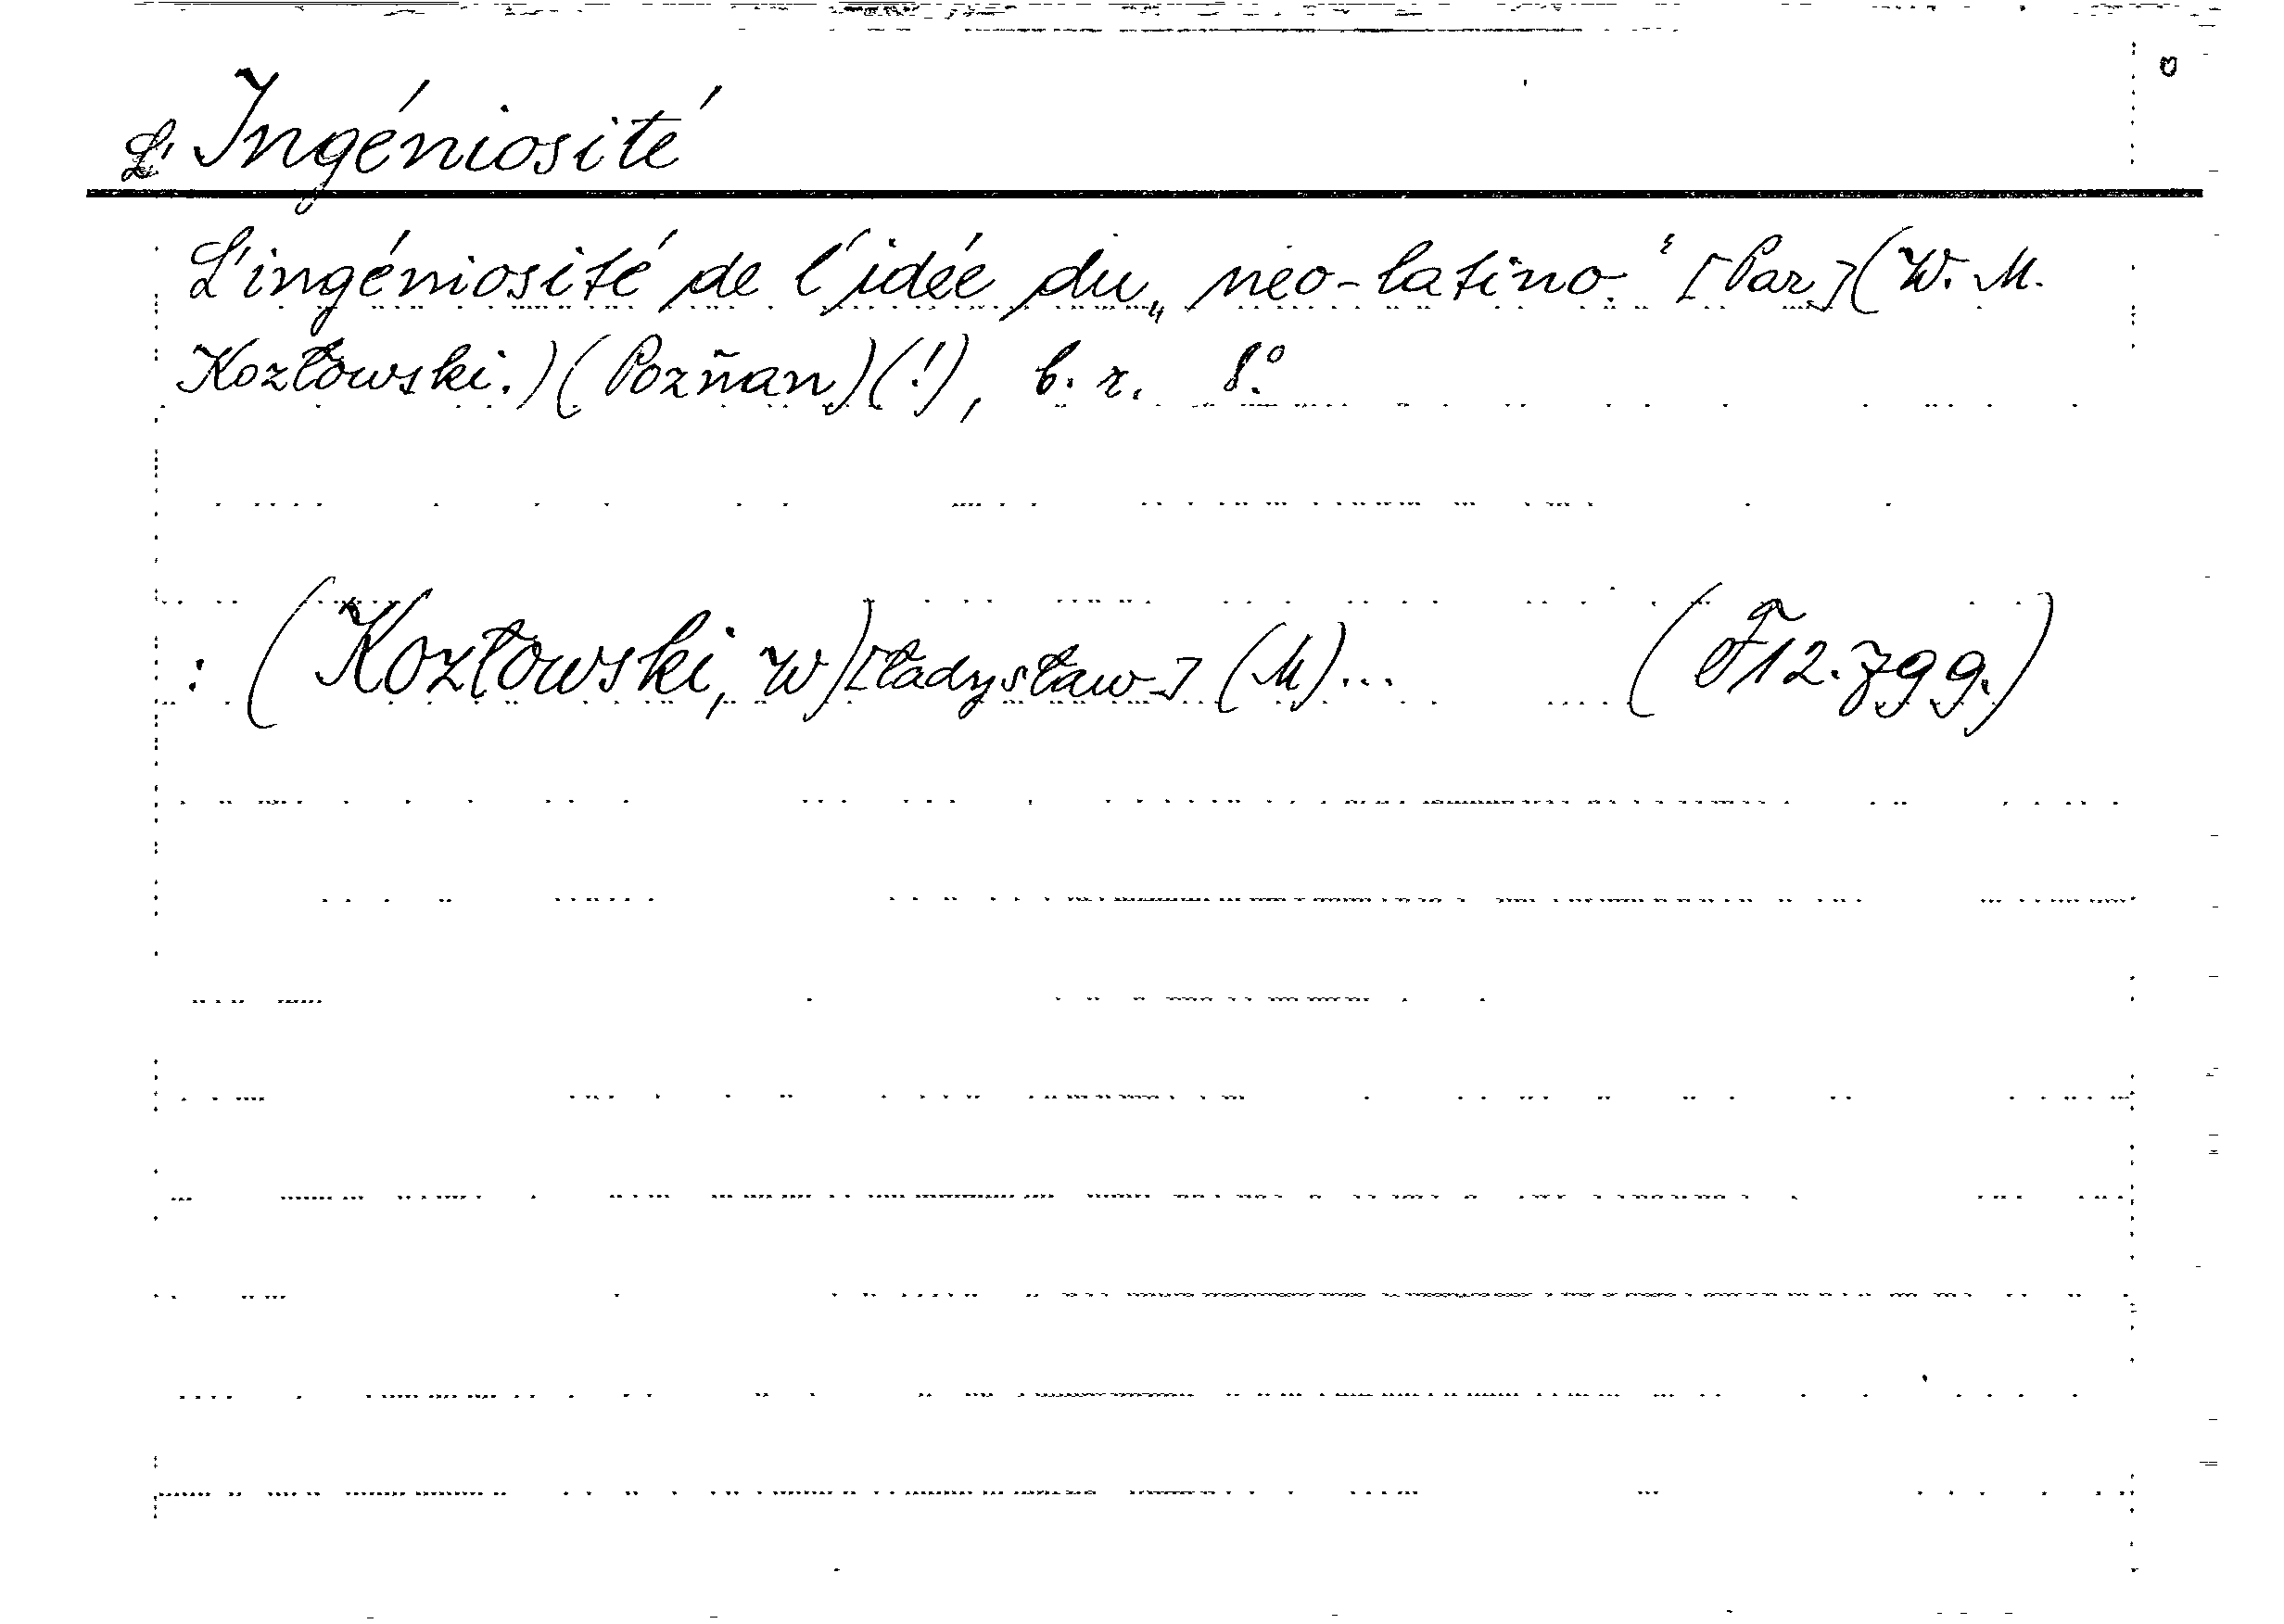 L' Ingéniosité
L'ingéniosité de l'idée du „neo-latino.“ [Par] (W. M.
Kozłowski.) (Pozñan) (!), b. r. 8.º
: (Kozłowski, W)[ładysław] (M)... (F12.799.)